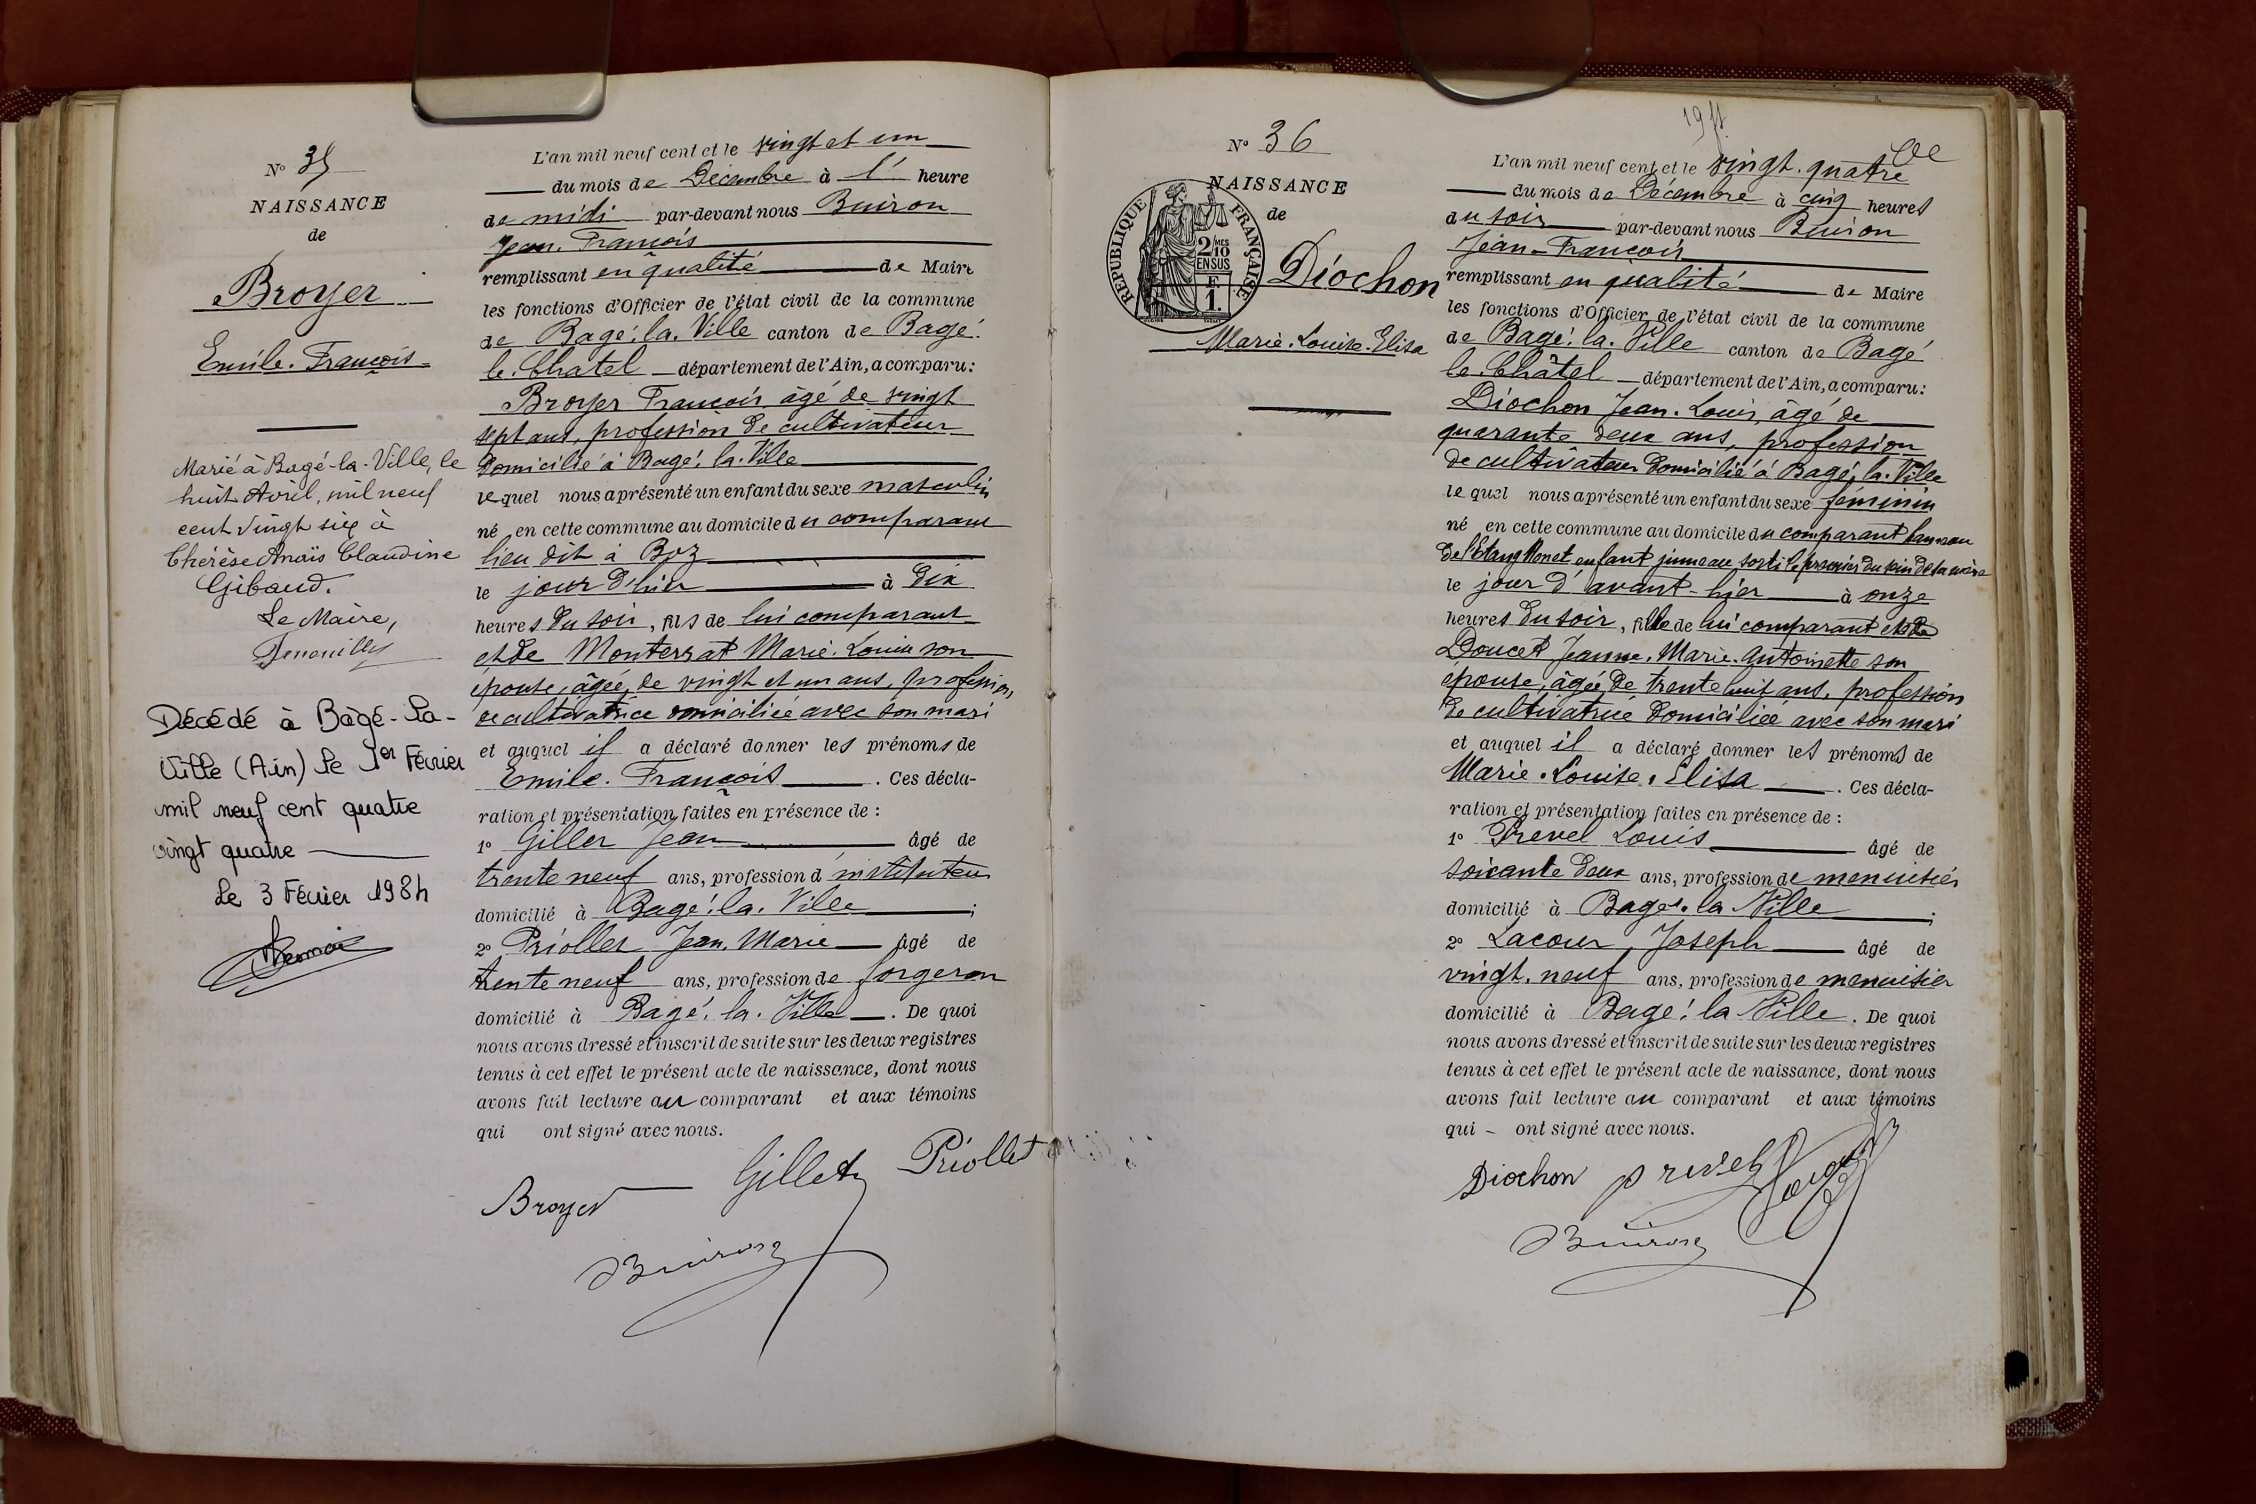 N° 35
NAISSANCE
de
Broyer
Emile. François
Marié à Bagé-la-Ville, le
huit Avril, mil neuf
cent vingt six à
Thérèse Anaïs Claudine
Gibaud.
Le Maire,
Décédé à Bâgé-La-
Ville (Ain) le 1er Février
mil neuf cent quatre
vingt quatre
Le 3 Février 1984
L'an mil neuf cent et le vingt et un
du mois de Décembre à l' heure
de midi par-devant nous Buiron
Jean. François
remplissant en qualité de Maire
les fonctions d'Officier de l'état civil de la commune
de Bagé. la. Ville canton de Bagé.
le. Chatel département de l'Ain, a comparu:
Broyer François âgé de vingt
sept ans, profession de cultivateur
domicilié à Bagé. la. Ville
lequel nous a présenté un enfant du sexe masculin
né en cette commune au domicile du comparant
lieu dit à Boz
le jour d'hier à dix
heures du soir, fils de lui comparant
et de Monterrat Marie. Louise son
épouse, âgée, de vingt et un ans, profession,
de cultivatrice domiciliée avec son mari
et auquel il a déclaré donner les prénoms de
Emile. François . Ces décla-
ration et présentation faites en présence de :
1° Gillet Jean âgé de
trente neuf ans, profession d'instituteur
domicilié à Bagé. la. Ville ;
2° Priollet Jean, Marie âgé de
trente neuf ans, profession de forgeron
domicilié à Bagé. la. Ville . De quoi
nous avons dressé et inscrit de suite sur les deux registres
tenus à cet effet le présent acte de naissance, dont nous
avons fait lecture au comparant et aux témoins
qui ont signé avec nous.
Broyer Gillet Priollet
Buiron
N° 36
NAISSANCE
de
RÉPUBLIQUE FRANÇAISE
2/10 MES
EN SUS
F.
1
Diochon
Marie. Louise. Elisa
L'an mil neuf cent et le vingt. quatre
du mois de Décembre à cinq heures
du soir par-devant nous Buiron
Jean-François
remplissant en qualité de Maire
les fonctions d'Officier de l'état civil de la commune
de Bagé. la. Ville canton de Bagé
le. Châtel département de l'Ain, a comparu:
Diochon Jean. Louis, âgé de
quarante deux ans, profession
de cultivateur domicilié à Bagé, la. Ville
lequel nous a présenté un enfant du sexe féminin
né en cette commune au domicile du comparant hameau
de l'Etang Monet enfant jumeau sorti le premier du sein de sa mère
le jour d'avant-hier à onze
heures du soir, fille de lui comparant et de
Doucet Jeanne. Marie. Antoinette son
épouse, âgée, de trente huit ans, profession
de cultivatrice domiciliée avec son mari
et auquel il a déclaré donner les prénoms de
Marie. Louise. Elisa . Ces décla-
ration et présentation faites en présence de :
1° Prevel Louis âgé de
soixante deux ans, profession de menuisier
domicilié à Bagé. la Ville ;
2° Lacour, Joseph âgé de
vingt. neuf ans, profession de menuisier
domicilié à Bagé. la Ville . De quoi
nous avons dressé et inscrit de suite sur les deux registres
tenus à cet effet le présent acte de naissance, dont nous
avons fait lecture au comparant et aux témoins
qui - ont signé avec nous.
Diochon prevel
Buiron